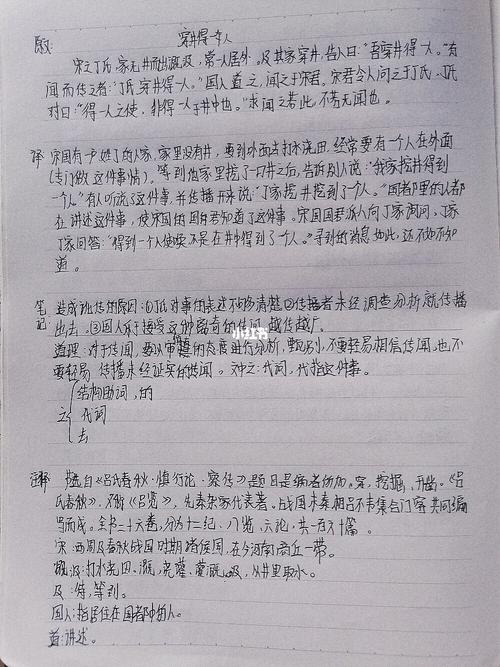 穿井得一人
原文: 宋之丁氏,家无井而出溉汲,常一人居外。及其家穿井,告人曰:“吾穿井得一人。”有
闻而传之者:“丁氏穿井得一人。”国人道之,闻之于宋君。宋君令人问之于丁氏,丁氏
对曰:“得一人之使,非得一人于井中也。”求闻之若此,不若无闻也。
译 宋国有一户姓丁的人家,家里没有井,要到外面去打水浇田,经常要有一个人在外面
(专门做这件事情)。等到他家里挖了一口井之后,告诉别人说:“我家挖井得到
一个人”有人听说了这件事,并传播开来说:“丁家挖井挖到了一个人。”国都里的人都
在讲述这件事,使宋国的国君知道了这件事。宋国国君派人向丁家询问,丁家
丁家回答:“得到一个人使唤,不是在井中得到了一个人。”寻到的消息如此,还不如不知
道。
笔记: 造成讹传的原因:①丁氏对事的表述不够清楚②传播者未经调查分析就传播
出去。③国人乐于接受这种离奇的传闻,越传越广。
小红书
道理:对于传闻,要以审慎的态度进行分析,甄别,不要轻易相信传闻,也不
要轻易 传播未经证实的传闻。文中之:代词,代指这件事。
结构助词,的
之 代词
去
注释 选自《吕氏春秋·慎行论·察传》题目是编者所加。穿,挖掘、开凿。《吕
氏春秋》,又称《吕览》,先秦杂家代表著。战国末秦相吕不韦集合门客共同编
写而成。全书二十六卷,分为十二纪、八览、六论,共一百六十篇。
宋:西周及春秋战国时期诸侯国,在今河南商丘一带。
溉汲:打水浇田、溉,浇灌,灌溉。汲,从井里取水。
及:待,等到。
国人:指居住在国都中的人。
道:讲述。